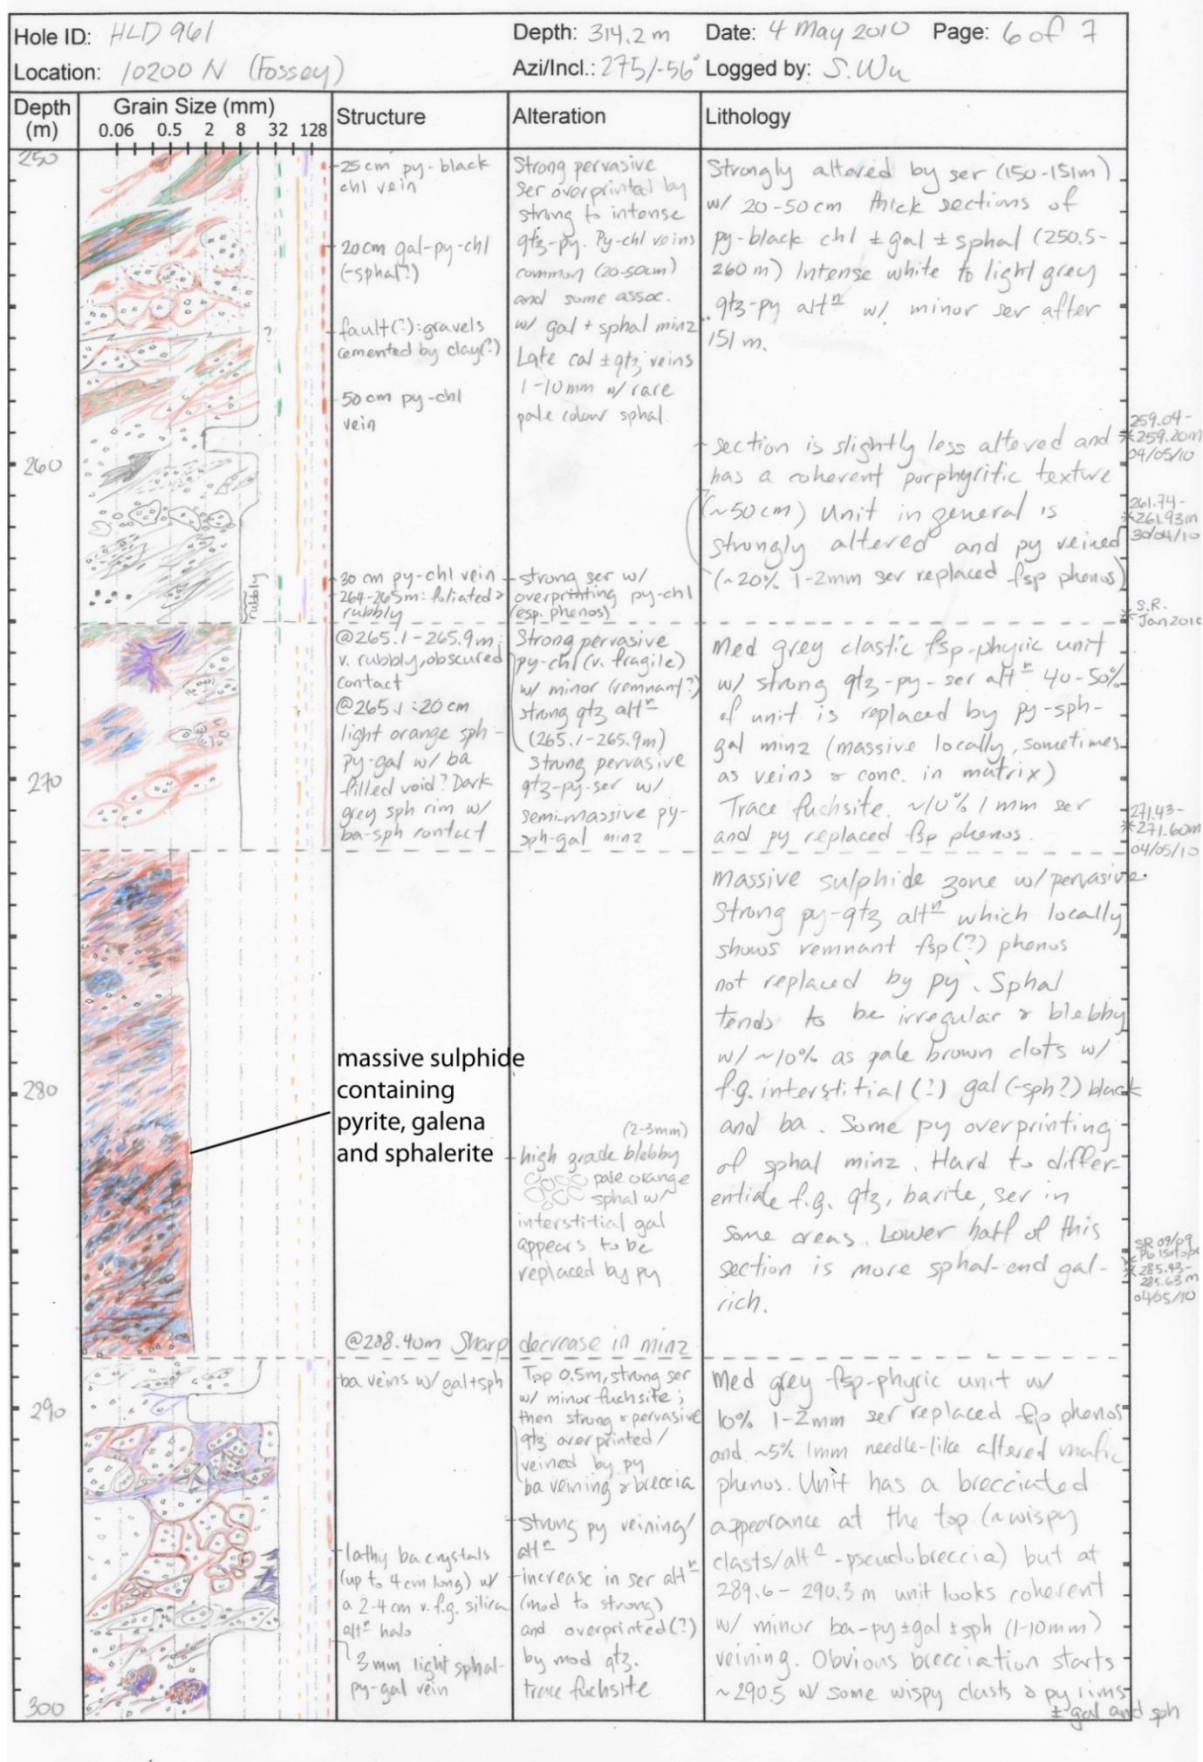 Hole ID: HLD 961
Depth: 314.2 m
Date: 4 May 2010
Page: 6 of 7
Location: 10200 N (Fossey)
Azi/Incl.: 275/-56°
Logged by: S. Wu
Depth (m)
Grain Size (mm)
0.06 0.5 2 8 32 128
Structure
Alteration
Lithology
250
260
270
280
290
300
?
rubbly
-25 cm py-black
chl vein
-20cm gal-py-chl
(-sphal?)
-fault(?): gravels
cemented by clay(?)
-50 cm py-chl
vein
-30 cm py-chl vein
-264-265m: foliated &
rubbly
@265.1-265.9m
v. rubbly, obscured
contact
@265.1: 20 cm
light orange sph-
py-gal w/ ba
filled void? Dark
grey sph rim w/
ba-sph contact
massive sulphide
containing
pyrite, galena
and sphalerite
@288.40m Sharp decrease in minz
-ba veins w/ gal+sph
-lathy ba crystals
(up to 4cm long) w/
a 2-4 cm v.f.g. silica
altⁿ halo
3 mm light sphal-
py-gal vein
Strong pervasive
ser overprinted by
strong to intense
qtz-py. Py-chl veins
common (20-50cm)
and some assoc.
w/ gal + sphal minz
Late cal ± qtz veins
1-10mm w/ rare
pale colour sphal.
-strong ser w/
overprinting py-chl
(esp. phenos)
Strong pervasive
py-chl (v. fragile)
w/ minor (remnant?)
strong qtz altⁿ
(265.1-265.9m)
Strong pervasive
qtz-py-ser w/
semi-massive py-
sph-gal minz
(2-3mm)
-high grade blebby
pale orange
sphal w/
interstitial gal
appears to be
replaced by py
Top 0.5m, strong ser
w/ minor fuchsite;
then strong & pervasive
qtz overprinted/
veined by py
ba veining & breccia
-strong py veining/
altⁿ
-increase in ser altⁿ
(mod to strong)
and overprinted(?)
by mod qtz.
trace fuchsite
Strongly altered by ser (150-151m)
w/ 20-50 cm thick sections of
py-black chl ± gal ± sphal (250.5-
260 m) Intense white to light grey
qtz-py altⁿ w/ minor ser after
151 m.
-section is slightly less altered and
has a coherent porphyritic texture
(~50 cm) Unit in general is
strongly altered and py veined
(~20% 1-2mm ser replaced fsp phenos)
Med grey clastic fsp-phyric unit
w/ strong qtz-py-ser altⁿ 40-50%
of unit is replaced by py-sph-
gal minz (massive locally, sometimes
as veins & conc. in matrix)
Trace fuchsite. ~10% 1 mm ser
and py replaced fsp phenos.
Massive sulphide zone w/ pervasive
strong py-qtz altⁿ which locally
shows remnant fsp(?) phenos
not replaced by py. Sphal
tends to be irregular & blebby
w/ ~10% as pale brown clots w/
f.g. interstitial (?) gal (-sph?) black
and ba. Some py overprinting
of sphal minz. Hard to differ-
entiate f.g. qtz, barite, ser in
some areas. Lower half of this
section is more sphal- and gal-
rich.
Med grey fsp-phyric unit w/
10% 1-2mm ser replaced fsp phenos
and ~5% 1mm needle-like altered mafic
phenos. Unit has a brecciated
appearance at the top (~wispy
clasts/altⁿ -pseudobreccia) but at
289.6 - 290.3 m unit looks coherent
w/ minor ba-py±gal±sph (1-10mm)
veining. Obvious brecciation starts
~290.5 w/ some wispy clasts & py rims
± gal and sph
259.04-
259.20m
04/05/10
261.74-
261.93m
30/04/10
S.R.
Jan 2010
271.43-
271.60m
04/05/10
SR 09/09
Pb isotope
285.43-
285.63m
04/05/10